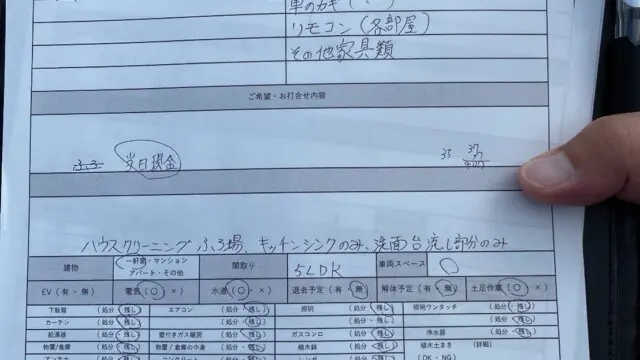 車のカギ
リモコン(各部屋)
その他家具類
ご希望・お打合せ内容
当日現金
35 37
ハウスクリーニング ふろ場、キッチンシンクのみ、洗面台流し部分のみ
建物 一軒家・マンション アパート・その他 間取り 5LDK 車両スペース ○
EV(有・無) 電気(○・×) 水道(○・×) 退去予定(有・無) 解体予定(有・無) 土足作業(○・×)
下駄箱 (処分・残し) エアコン (処分・残し) 照明 (処分・残し) 照明ワンタッチ (処分・残し)
カーテン (処分・残し) (処分・残し) (処分・残し) (処分・残し)
給湯器 (処分・残し) 壁付きガス暖房 (処分・残し) ガスコンロ (処分・残し) 浄水器 (処分・残し)
物置/倉庫 (処分・残し) 物置/倉庫の中身 (処分・残し) 植木鉢 (処分・残し) 植木土まき (詳細)
アンテナ (処分・残し) (処分・残し) レンガ (処分・残し) (OK・NG)